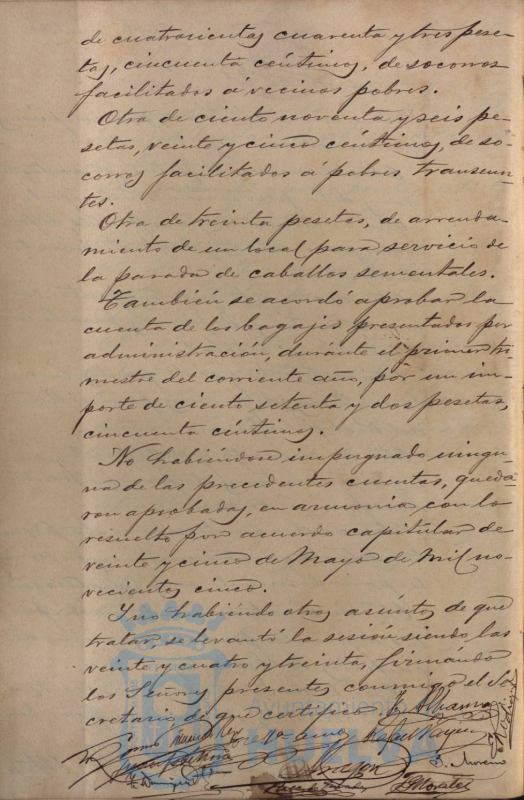 de cuatrocientas cuarenta y tres pese-
tas, cincuenta céntimos, de socorros
facilitados á vecinos pobres.
Otra de ciento noventa y seis pe-
setas, veinte y cinco céntimos, de so-
corros facilitados á pobres transeun-
tes.
Otra de treinta pesetas, de arrenda-
miento de un local para servicio de
la parada de caballos sementales.
También se acordó aprobar la
cuenta de los bagajes presentados por
administración, durante el primer tri-
mestre del corriente año, por un im-
porte de ciento setenta y dos pesetas,
cincuenta céntimos.
No habiéndose impugnado ningu-
na de las precedentes cuentas, queda-
ron aprobadas, en armonía con lo
resuelto por acuerdo capitular de
veinte y cinco de Mayo de mil no-
vecientos cinco.
Y no habiendo otros asuntos de que
tratar, se levantó la sesión siendo las
veinte y cuatro y treinta, firmando
los Señores presentes conmigo el Se-
cretario de que certifico.
Ayuntamiento
HUELVA
Rafael
J. Moreno